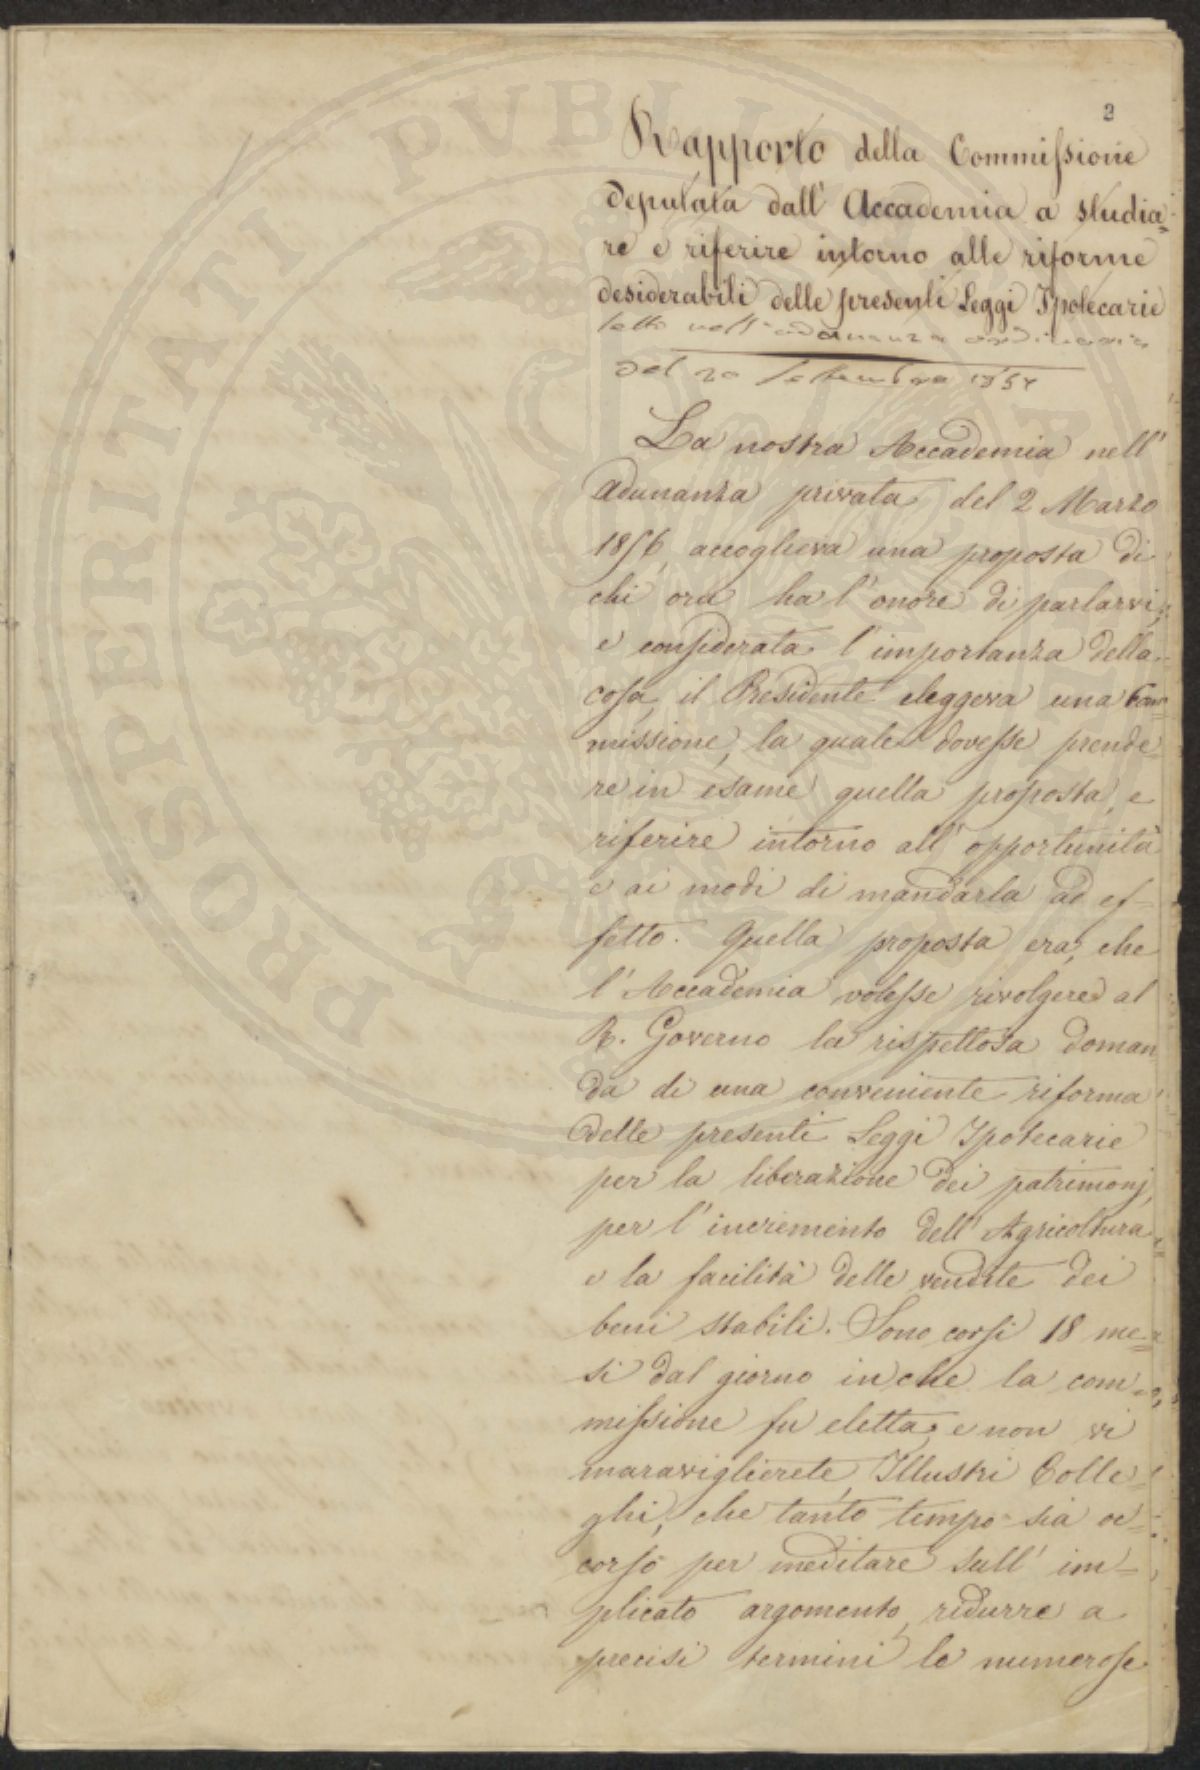 2
Rapporto della Commissione
deputata dall' Accademia a studia=
re e riferire intorno alle riforme
desiderabili delle presenti Leggi Ipotecarie
letto nell'adunanza ordinaria
del 20 settembre 1857
La nostra Accademia nell'
adunanza privata del 2 Marzo
1856, accoglieva una proposta di
chi ora ha l'onore di parlarvi,
e considerata l'importanza della
cosa, il Presidente eleggeva una Com=
missione, la quale dovesse prende
re in esame quella proposta, e
riferire intorno all' opportunità
e ai modi di mandarla ad ef-
fetto. Quella proposta era, che
l'Accademia volesse rivolgere al
R. Governo la rispettosa doman
da di una conveniente riforma
delle presenti Leggi Ipotecarie
per la liberazione dei patrimonj,
per l'incremento dell' Agricoltura
e la facilità delle vendite dei
beni stabili. Sono corsi 18 me=
si dal giorno in che la com=
missione fu eletta; e non vi
maraviglierete, Illustri Colle=
ghi, che tanto tempo sia oc=
corso per meditare sull' im-
plicato argomento, ridurre a
precisi termini le numerose
PROSPERITATI PVBLICAE